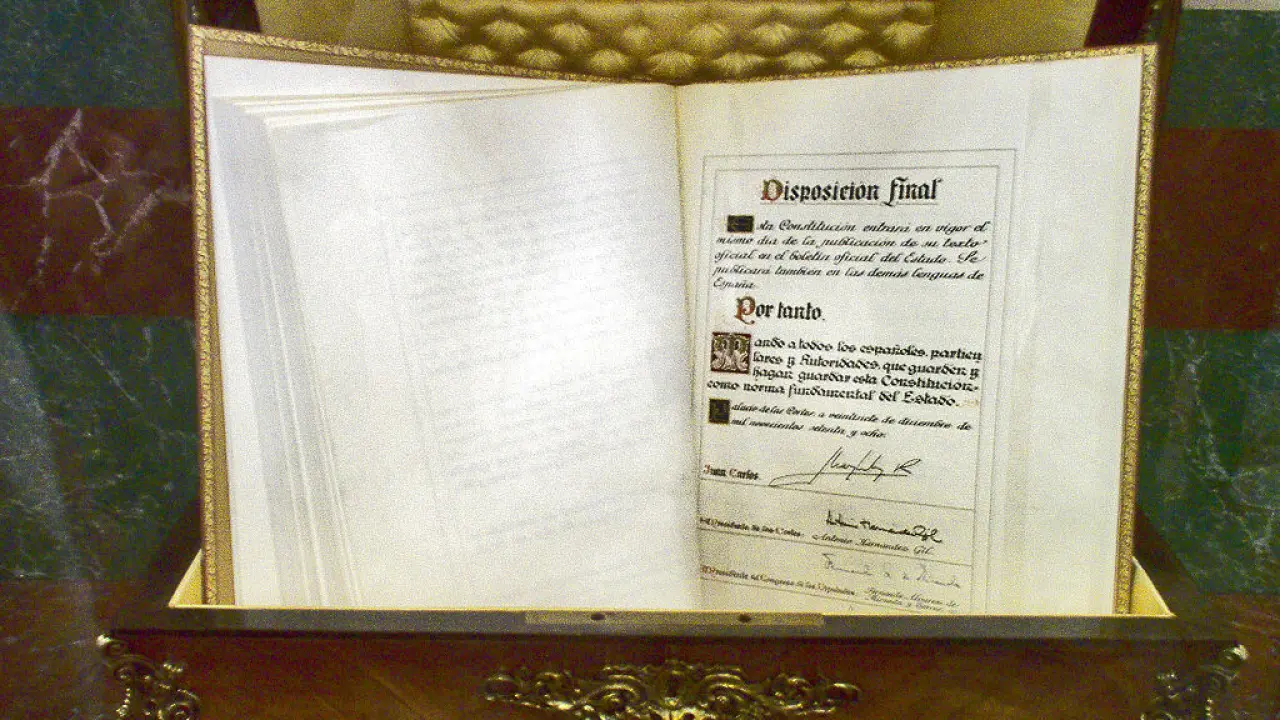 Disposicion final
Esta Constitución entrará en vigor el
mismo dia de la publicación de su texto
oficial en el boletin oficial del Estado. Se
publicará también en las demás lenguas de
España.
Por tanto.
Mando a todos los españoles, particu
lares y Autoridades, que guarden y
hagan guardar esta Constitucion
como norma fundamental del Estado.
Palacio de las Cortes, a veintisiete de diciembre de
mil novecientos setenta y ocho.
Juan Carlos R
El Presidente de las Cortes. Antonio Hernández Gil
El Presidente del Congreso de los Diputados.